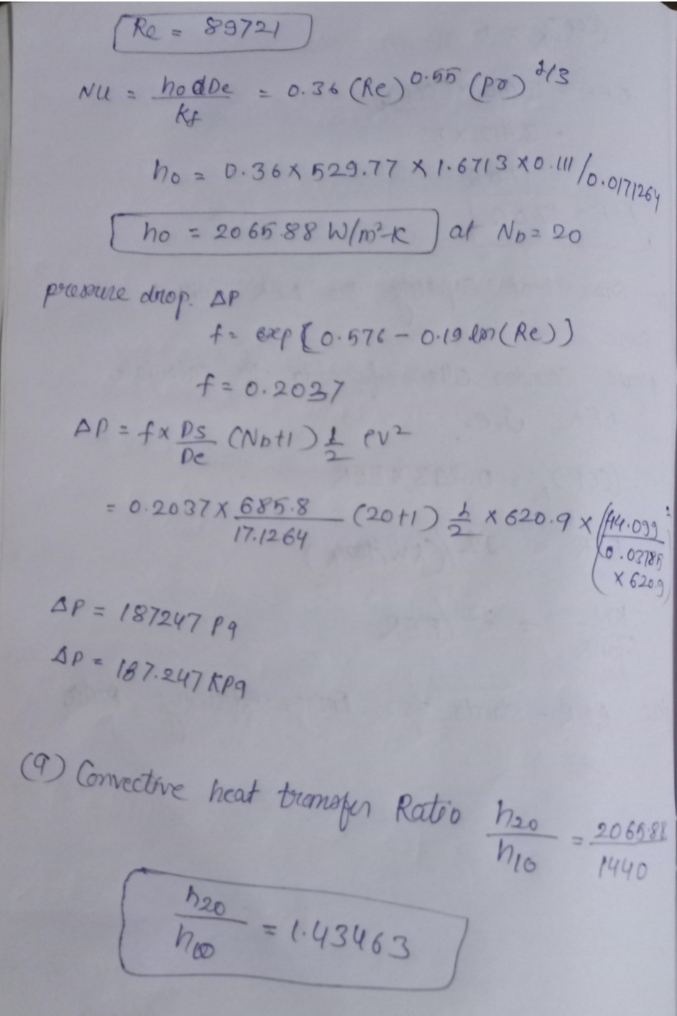 Re = 89721
Nu = hodDe/Kf = 0.36 (Re)^0.55 (Pr)^1/3
ho = 0.36 x 529.77 x 1.6713 x 0.111/0.0171264
ho = 2065.88 W/m²-K at Nb = 20
pressure drop. ΔP
f = exp [0.576 - 0.19 ln(Re)]
f = 0.2037
ΔP = f x Ds/De (Nb+1) 1/2 ρv²
= 0.2037 x 685.8/17.1264 (20+1) 1/2 x 620.9 x (44.099/0.03785 x 620.9)²
ΔP = 187247 Pa
ΔP = 187.247 KPa
(a) Convective heat transfer Ratio h20/h10 = 2065.88/1440
h20/h10 = 1.43463